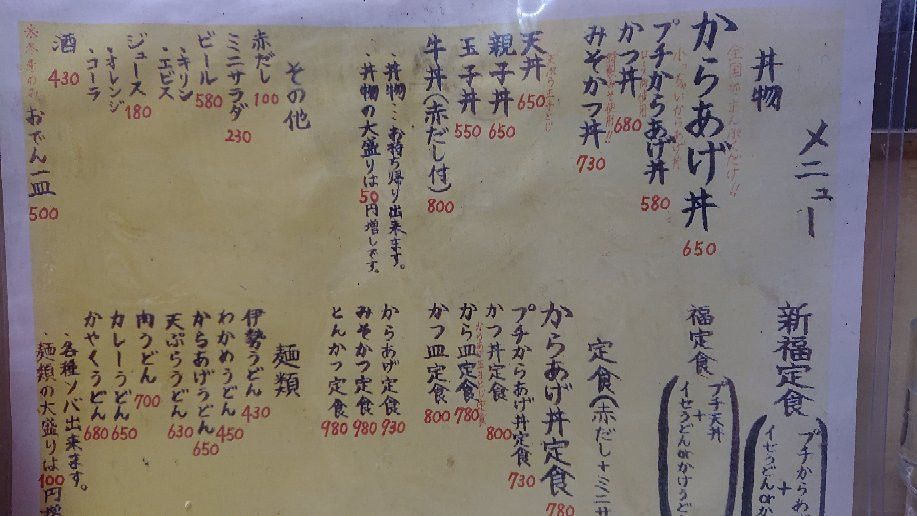 メニュー
丼物
からあげ丼 650
プチからあげ丼 580
かつ丼 680
みそかつ丼 730
天丼 650
親子丼 650
玉子丼 550
牛丼(赤だし付) 800
・丼物…お持ち帰り出来ます。
・丼物の大盛りは50円増しです。
その他
赤だし 100
ミニサラダ 230
ビール 580
・キリン
・エビス
ジュース 180
・オレンジ
・コーラ
酒 430
おでん一皿 500
新福定食
プチからあ
+
イセうどんorか
福定食
プチ天丼
+
イセうどんorかけうど
定食(赤だし+ミニサ
からあげ丼定食 780
プチからあげ丼定食 730
かつ丼定食 800
から皿定食 780
かつ皿定食 800
からあげ定食 930
みそかつ定食 980
とんかつ定食 980
麺類
伊勢うどん 430
わかめうどん 450
からあげうどん 650
天ぷらうどん 630
肉うどん 700
カレーうどん 650
かやくうどん 680
・各種ソバ出来ます。
・麺類の大盛りは100円増